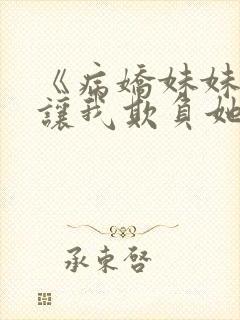 《病嬌妹妹
讓我欺負她
承東啓